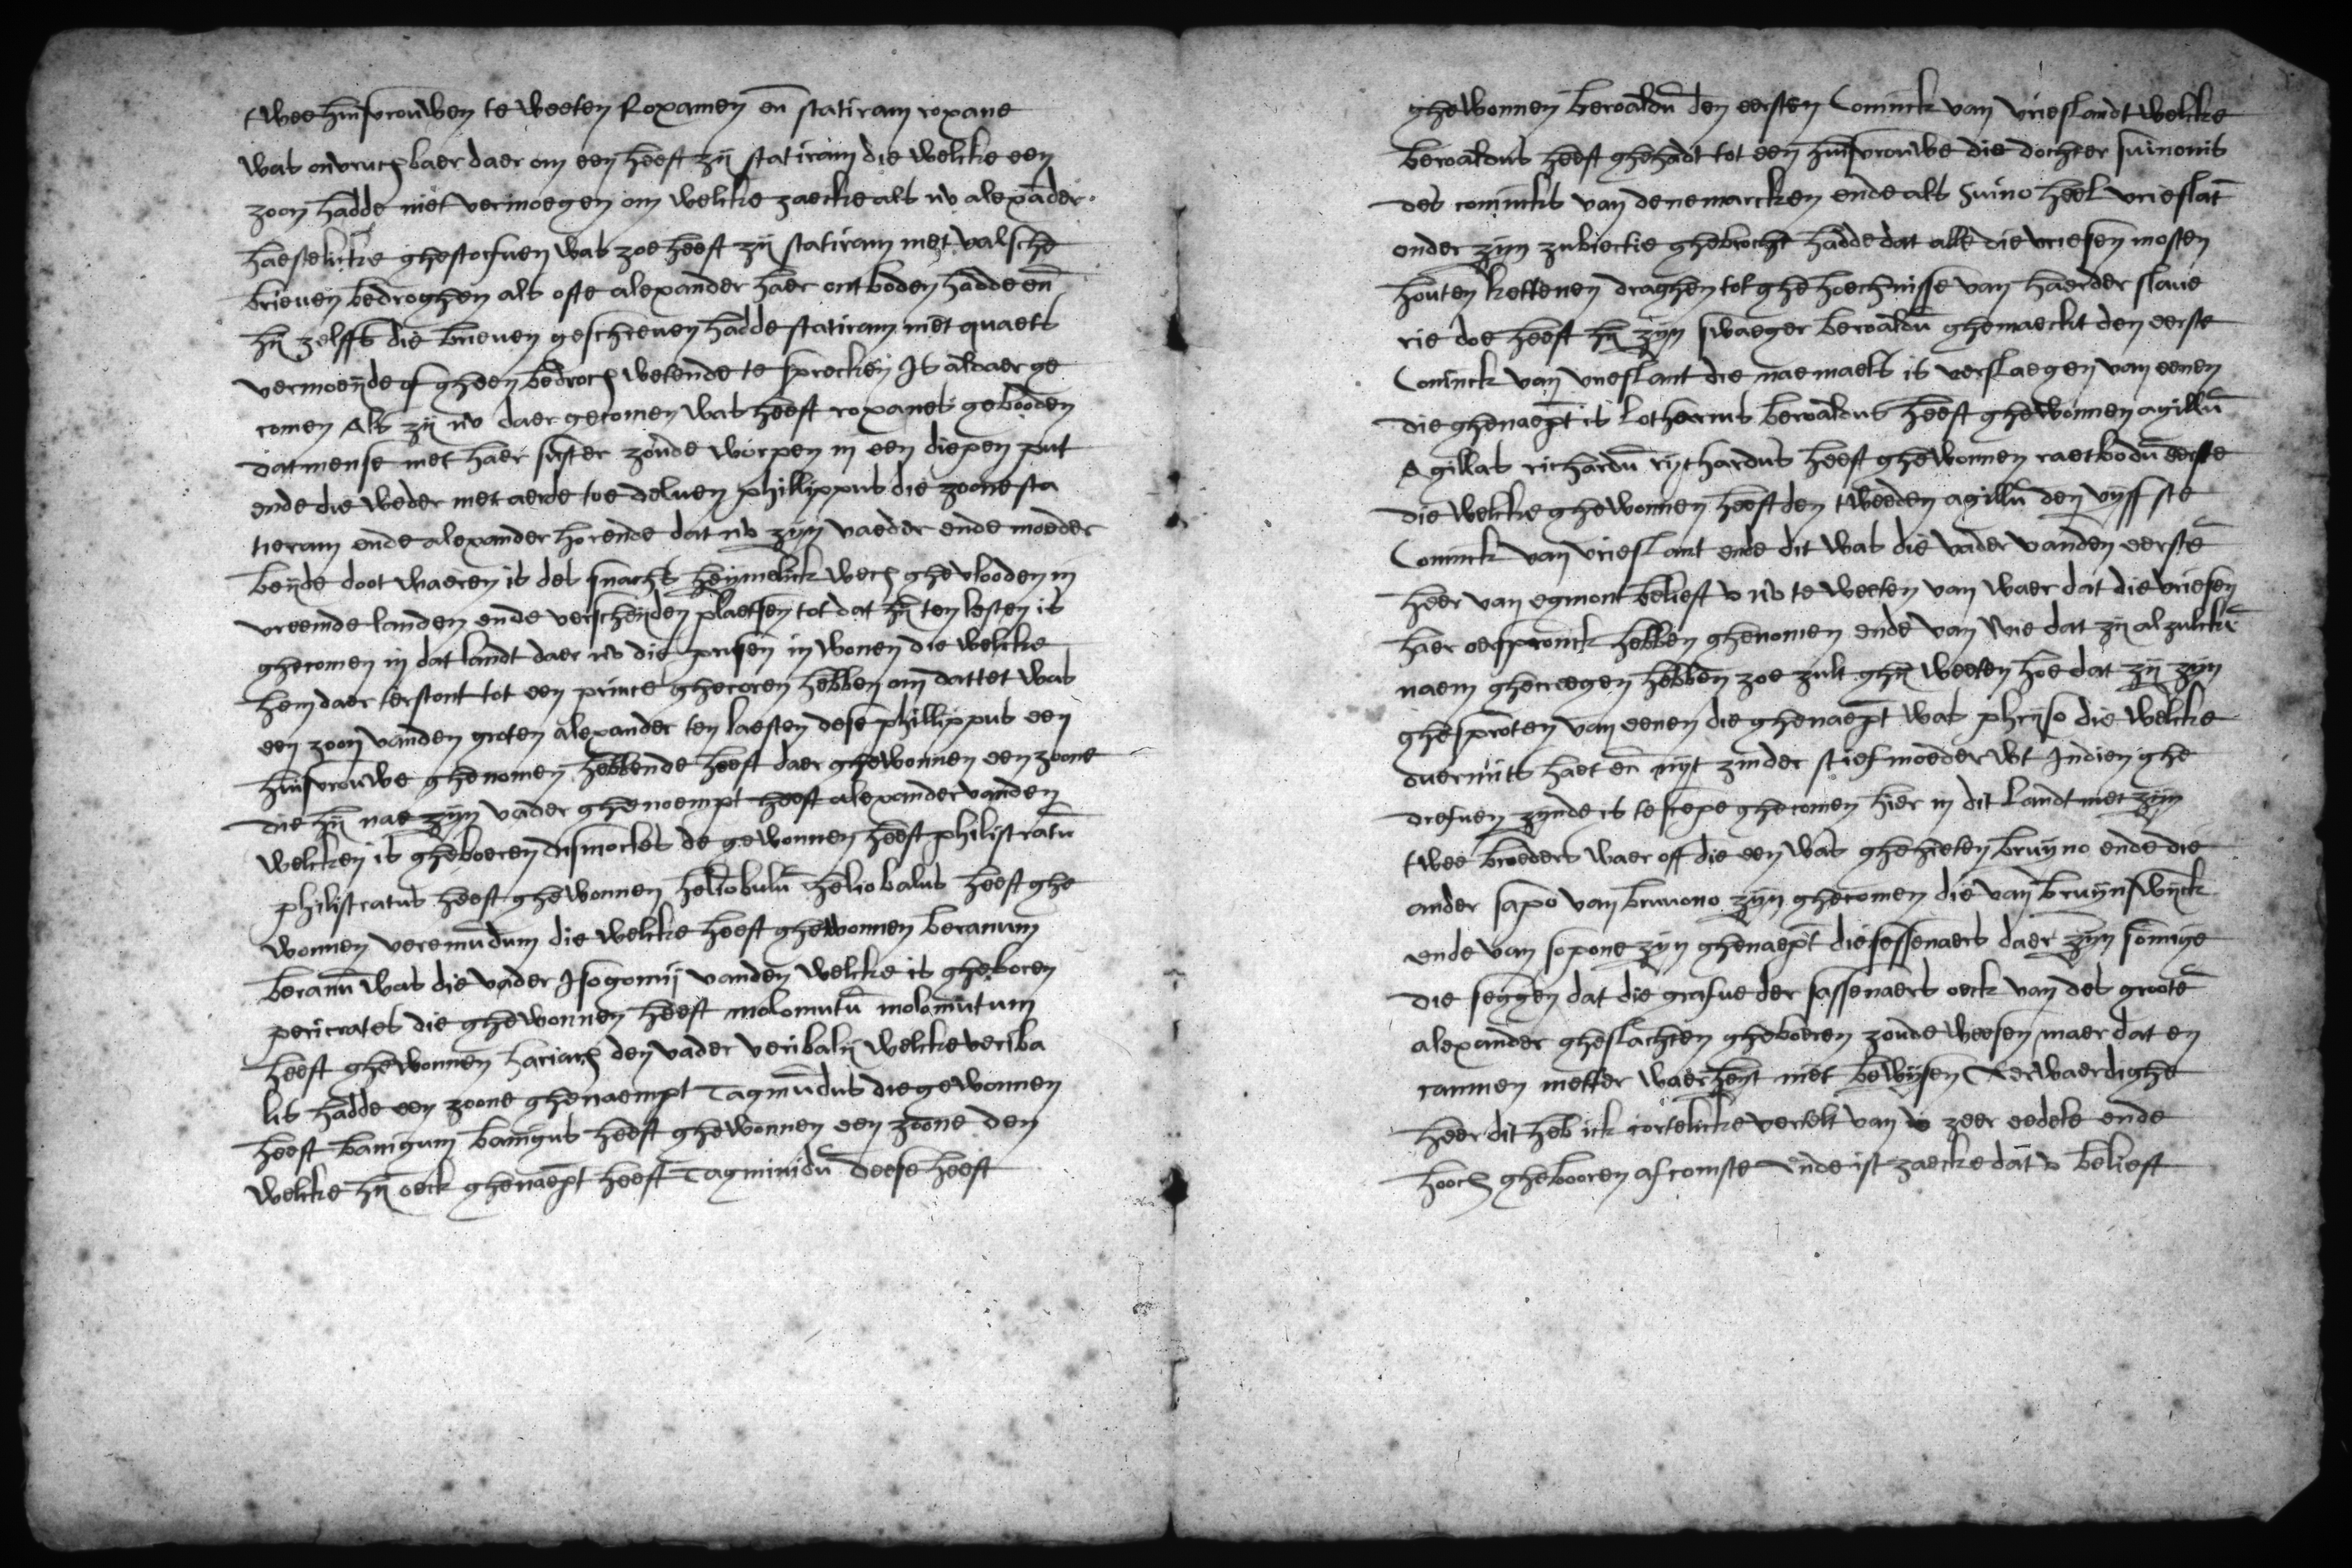 twee huisvrouwen te weeten Roxamen en̄ statiram roxane
was onvruchbaer daer om een heeft zij statiram die welcke een
zoon hadde niet vermoegen om welcke zaecke als nv alexāder
haestelicke ghestorfuen was zoe heeft zij statiram met valsche
brieuen bedroghen als ofte alexander haer ontboden hadde en̄
hij zelffs die brieuen geschreuen hadde statiram niet quaets
vermoeijnde of gheen bedroch wetende te sprecken Is aldaer ge
comen Als zij nv daer gecomen was heeft roxanes gebooden
datmense met haer suster zoude worpen in een diepen put
ende die weder met aerde toe deluen phillippus die zoone sta
tieram ende alexander horende dat nv zijn vaeder ende moeder
beijde doot waeren is des snachs heijmelick wech ghevlooden in
vreemde landen ende verscheijden plaetsen tot dat hij ten lesten is
ghecomen in dat landt daer nv die prusen in wonen die welcke
hem daer terstont tot een prince ghecoren hebben om dattet was
een zoon vanden groten alexander ten laesten dese phillippus een
huisvrouwe ghenomen hebbende heeft daer ghewonnen een zoone
die hij nae zijn vader ghenoempt heeft alexander vanden
welcken is gheboeren dismocles de gewonnen heeft philistratū
philistratus heeft ghewonnen heliobulū heliobalus heeft ghe
wonnen veremūdum die welcke heeft ghewonnen beranum
beranū was die vader Isogomij vanden welcke is gheboren
pericrates die ghewonnen heeft molomutū molomutum
heeft ghewonnen hariach den vader veribalij welcke veriba
lis hadde een zoone ghenaempt Tagmūdus die gewonnen
heeft banigum banigus heeft ghewonnen een zoone den
welcke hij oeck ghenaept heeft Tagminidū deese heeft
ghewonnen beroaldū den eersten Coninck van vrieslandt welcke
beroaldus heeft ghehadt tot een huisvrouwe die dochter suinonis
des conincks van denemarcken ende als Suino heel vrieslāt
onder zijn zubiectie ghebrocht hadde dat alle die vriesen mosten
houten kettenen draghen tot ghehoechnisse van haerder slaue
rie doe heeft hij zijn swaeger beroaldū ghemaeckt den eerste
Coninck van vrieslant die naemaels is verslaegen van eenen
die ghenaept is lotharius beroaldus heeft ghewonnen agillū
Agillas richardū rijchardus heeft ghewonnen raetbodū eerste
die welcke ghewonnen heeft den tweeden agillū den vijffstē
Coninck van vrieslant ende dit was die vader vanden eerstē
heer van egmont belieft v nv te weeten van waer dat die vriesen
haer oerspronck hebben ghenomen ende van wie dat zij alzulckē
naem ghecreegen hebben zoe zult ghij weeten hoe dat zij zijn
ghesproten van eenen die ghenaept was phrijso die welcke
ouermits haet en̄ nijt zinder stiefmoeder wt Indien ghe
drefuen zijnde is te scepe ghecomen hier in dit landt met zijn
twee broeders waer off die een was ghehieten bruijno ende die
ander sapo van brunono zijn ghecomen die van bruijnswijck
ende van sopone zijn ghenaept die sessenaers daer zijn somige
die seggen dat die grafue der sassenaers oeck van des grootē
alexander gheslachten gheboeren zoude weesen maer dat en
cannen metter waerheijt niet bewijsen Eerwaerdighe
heer dit heb ick cortelicke vertelt van v zeer eedele ende
hooch ghebooren afcomste ende ist zaecke dat v belieft